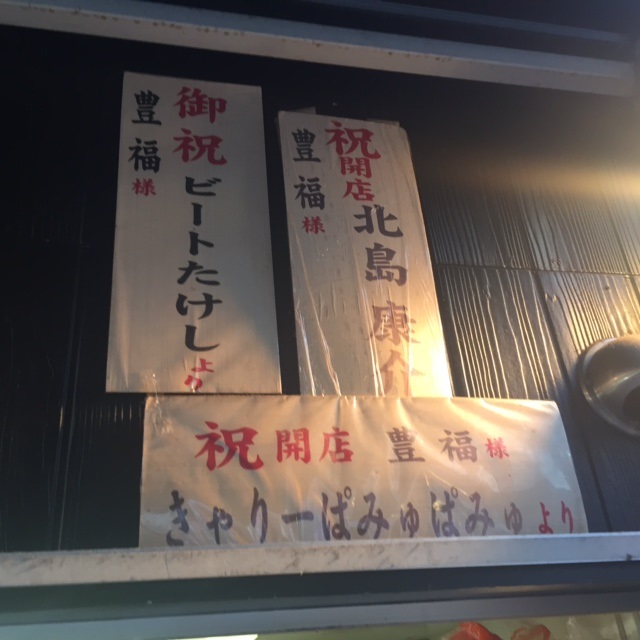 御祝
豊福様
ビートたけしより
祝開店
豊福様
北島康介
祝開店 豊福様
きゃりーぱみゅぱみゅより